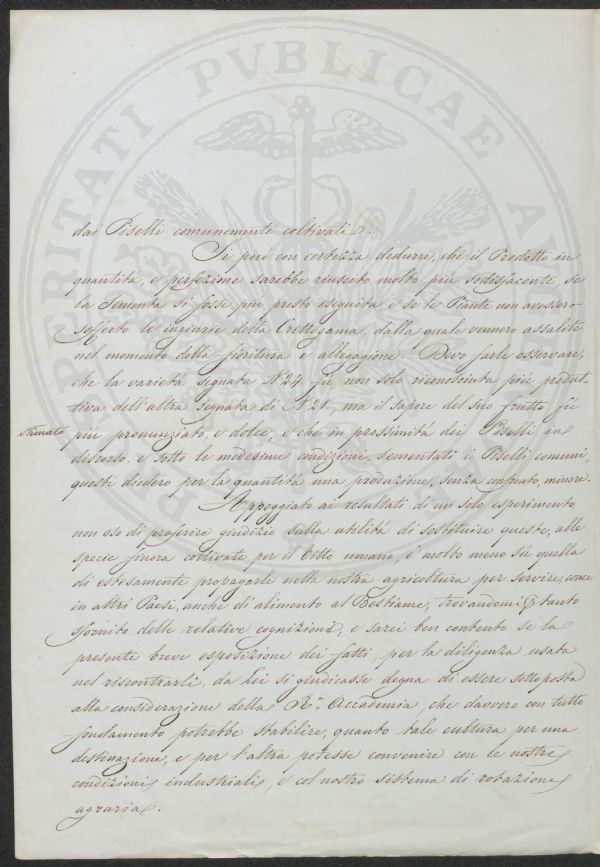 dai Piselli comunemente coltivati.
Si può con certezza dedurre, che il Prodotto in
quantità, e perfezione sarebbe riuscito molto più sodisfacente se
la Sementa si fosse più presto eseguita, e se le Piante non avessero
sofferto le ingiurie della Crittogama, dalla quale vennero assalite
nel momento della fioritura e allegagione. Devo farle osservare,
che la varietà segnata N.24. fù non solo riconosciuta più produt-
tiva dell'altra segnata di N.21, ma il sapore del suo frutto fù
stimato
più pronunziato, e dolce, e che in prossimità dei Piselli in
discorso, e sotto le medesime condizioni, sementati i Piselli comuni,
questi diedero per la quantità una produzione, senza confronto, minore.
Appoggiato ai resultati di un solo esperimento,
non oso di proferire giudizio sulla utilità di sostituire queste, alle
specie finora coltivate per il Vitto umano, e molto meno sù quella
di estesamente propagarle nella nostra agricoltura per servire, come
in altri Paesi, anche di alimento al Bestiame, trovandomi tanto
sfornito delle relative cognizioni, e sarei ben contento se la
presente breve esposizione dei fatti, per la diligenza usata
nel riscontrarli, da lei si giudicasse degna di essere sottoposta
alla considerazione della R.ª Accademia, che davvero con tutto
fondamento potrebbe stabilire, quanto tale cultura per una
destinazione, e per l'altra potesse convenire con le nostre
condizioni industriali, e col nostro sistema di rotazione
agraria.
PROSPERITATI PVBLICAE AVGENDAE